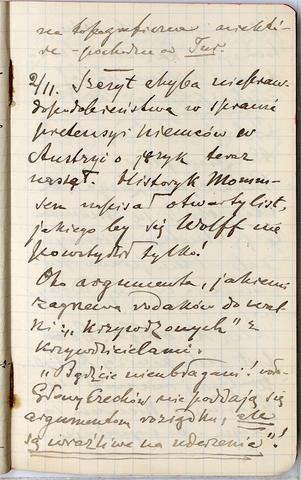 na topograficzne niektó-
re - pochodne od Tur.
2/11. Szczyt chyba nieprawdo-
dopodobieństwa w sprawie
pretensyi Niemców w
Austryi o język teraz
nastał. Historyk Momm-
sen napisał otwarty list,
jakiego by się Wolff nie
powstydził tylko!
Oto argumenta, jakiemi
zagrzewa rodaków do wal-
ki: „krzywdzonych" z
krzywdzicielami.
„Bądźcie nieubłagani! woła
Głowy Czechów nie poddają się
argumentom rozsądku, ale
są wrażliwe na uderzenia"!